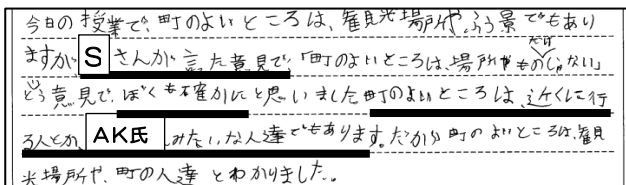 今日の授業で、町のよいところは、観光場所や、ふう景でもあり
ますが、Sさんが言った意見で、「町のよいところは、場所やものだけじゃない」
という意見で、ぼくも確かにと思いました。町のよいところは、近くに行
る人とか、AK氏みたいな人達でもあります。だから町のよいところは、観
光場所や、町の人達とわかりました。